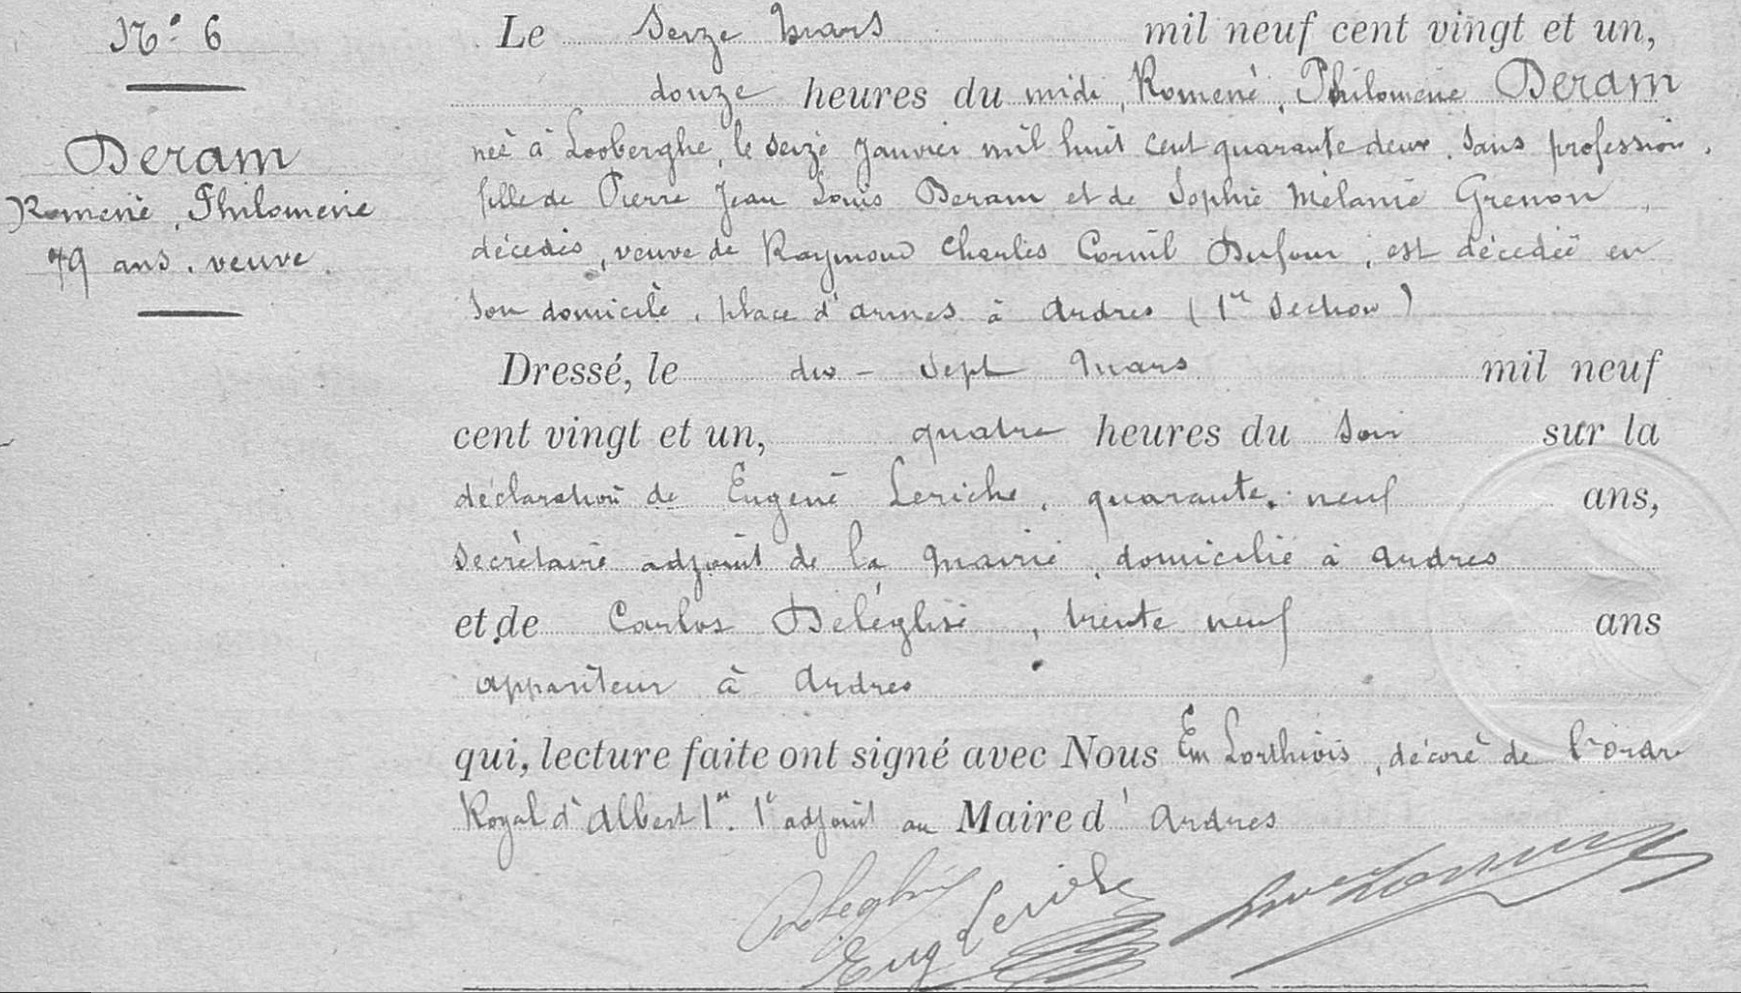 N° 6
Deram
Romenie, Philomenie
79 ans. veuve
Le seize Mars mil neuf cent vingt et un,
douze heures du midi, Romenie, Philomenie Deram
née à Looberghe, le seize Janvier mil huit cent quarante deux. Sans profession,
fille de Pierre Jean Louis Deram et de Sophie Mélanie Grenon,
décédés, veuve de Raymond Charles Cornil Dufour, est décédée en
son domicile, place d'armes à Ardres (1re Section)
Dressé, le dix-sept Mars mil neuf
cent vingt et un, quatre heures du soir sur la
déclaration de Eugène Leriche, quarante-neuf ans,
Secrétaire adjoint de la Mairie, domicilié à Ardres
et de Carlos Deléglise, trente neuf ans
appariteur à Ardres
qui, lecture faite ont signé avec Nous Em Lorthiois, décoré de l'ordre
Royal d'Albert 1er. 1er adjoint au Maire d'Ardres
Deleglise
Eug Leriche